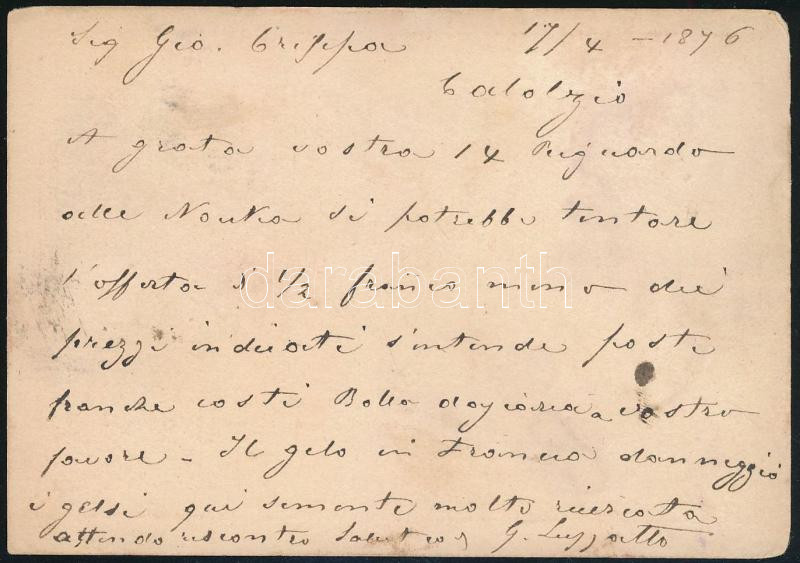 Sig Gio. Crippa 17/4 - 1876
Calolzio
A grata vostra 14 Riguardo
alle Nouka si potrebbe tentare
l'offerta di 1/2 franco meno dei
prezzi indicati s'intende poste
franche costi Bolla daziaria a vostro
favore - Il gelo in Francia danneggiò
i gelsi qui semente molto ricercata
attendo riscontro Saluto G. Luzzatto
darabanth